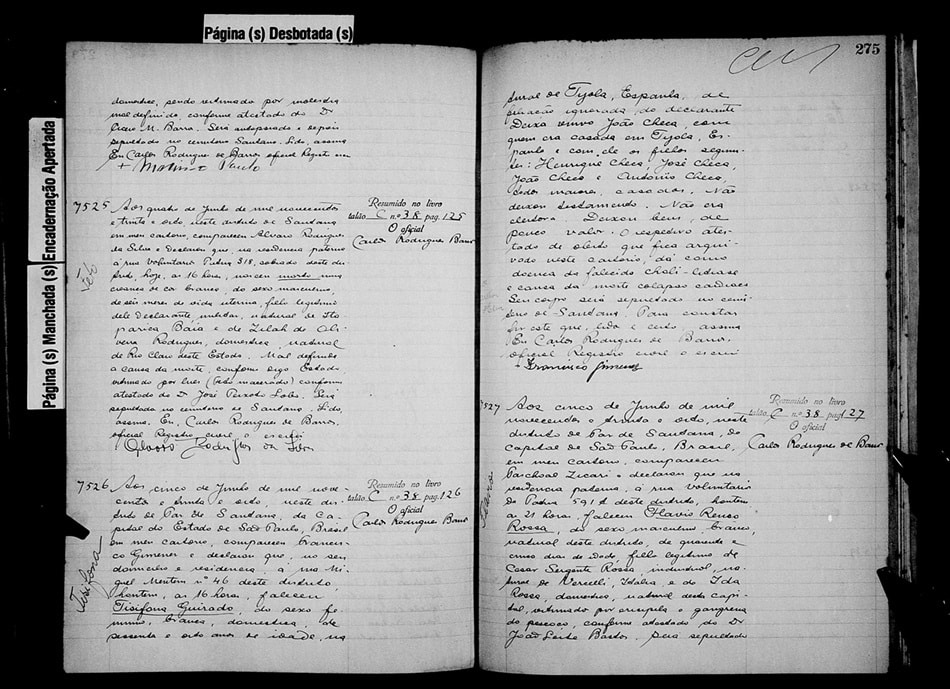 Página (s) Desbotada (s)
Página (s) Manchada (s)
Encadernação Apertada
domestica, sendo victimado por molestia
mal definido, conforme atestado do Dr
Cicero M. Barra. Será autopsiado e depois
sepultado no cemiterio Santana. Lido, assina
Eu Carlos Rodrigues de Barros, oficial Registo
7525
Aos quatro de Junho de mil novecentos
e trinta e oito neste distrito de Santana
em meu cartorio, compareceu Alvaro Rodrigues
da Silva e declarou que, na residencia paterna
á rua Voluntarios Patria 318, sobrado deste dis-
trito, hoje, as 16 horas, nasceu morto uma
creança de cor branca, do sexo masculino,
de seis mezes de vida interna, filho legitimo
dele Declarante, natural de Ita-
parica, Baía e de Zilah de Oli-
veira Rodrigues, domestica, natural
de Rio Claro deste Estado. Mal definida
a causa da morte, conforme digo Estado
victimado por lues (feto macerado) conforme
atestado do Dr José Peixoto Lobo. Será
sepultado no cemiterio de Santana. Lido,
assina. Eu, Carlos Rodrigues de Barros,
oficial Registro civil, o escrevi
Alvaro Rodrigues da Silva
Resumido no livro
talão C n.º 38 pag. 125
O oficial
Carlos Rodrigues Barros
7526
Tisifona
Aos cinco de Junho de mil nove-
centos e trinta e oito neste dis-
trito de Par de Santana, da Ca-
pital do Estado de São Paulo, Brasil
em meu cartorio, compareceu Francis-
co Gimenez e declarou que, no seu
domicilio e residencia, á rua Mi-
guel Mentem nº 46 deste distrito
hontem, as 16 horas, faleceu
Tisifona Guirado, do sexo fe-
minino, branca, domestica, de
sessenta e oito anos de idade, na
Resumido no livro
talão C n.º 38 pag. 126
O oficial
Carlos Rodrigues Barros
275
tural de Tyola, Espanha, de
filiação ignorada do declarante
Deixa viuvo João Checa, com
quem era casada em Tyola, Es-
panha e com ele os filhos seguin-
tes: Henrique Checa, José Checa,
João Checa e Antonio Checa,
todos maiores, casados. Não
deixou testamento. Não era
eleitora. Deixou bens, de
pouco valor. O respetivo ates-
tado de obito que fica arqui-
vado neste cartorio, dá como
doença da falecida choli-litiase
e causa da morte colapso cardiaco
Seu corpo será sepultado no cemi-
terio de Santana. Para constar
fiz este que, lido e certo, assina
Eu Carlos Rodrigues de Barros,
oficial Registro civil o escrevi
Francisco Gimenez
7527
Aos cinco de Junho de mil
novecentos e trinta e oito, neste
distrito de Par de Santana, da
capital de São Paulo, Brasil,
em meu cartorio, compareceu
Paschoal Zicari e declarou que na
residencia paterna, á rua Voluntarios
da Patria 591 A deste distrito, hontem
as 21 horas, faleceu Flavio Renso
Rossa, do sexo masculino, branco,
natural deste distrito, de quarenta e
cinco dias de idade, filho legitimo de
Cesar Sergente Rossa, industrial, na-
tural de Vercelli, Italia, e de Ida
Rossa, domestica, natural desta capi-
tal, victimado por erisipela e gangrena
do pescoço, conforme atestado do Dr
João Leite Bastos. Será sepultado
Resumido no livro
talão C n.º 38 pag. 127
O oficial
Carlos Rodrigues de Barros